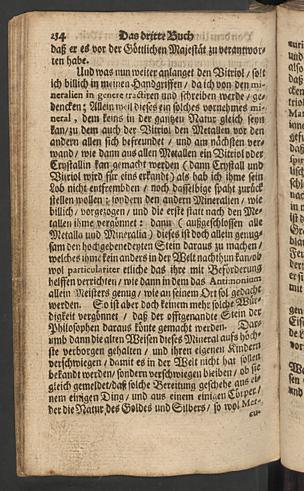 154 Das dritte Buch
daß er es vor der Göttlichen Majestät zu verantwor-
ten habe.
Und was nun weiter anlanget den Vitriol / solt
ich billich in meinen Handgriffen / da ich von den mi-
neralien in genere tractiren und schreiben werde / ge-
dencken; Allein weil dieses ein solches vornehmes mi-
neral, dem keins in der gantzen Natur gleich seyn
kan / zu dem auch der Vitriol den Metallen vor den
andern allen sich befreundet / und am nächsten ver-
wand / wie dann aus allen Metallen ein Vitriol oder
Crystallin kan gemacht werden (dann Crystall und
Vitriol wird für eins erkandt) als hab ich ihme sein
Lob nicht entfrembden / noch dasselbige spaht zurück
stellen wollen; sondern den andern Mineralien / wie
billich / vorgezogen / und die erste statt nach den Me-
tallen ihme vergönnet: dann (außgeschlossen alle
Metalla und Mineralia) dieses ist doch allein gnug-
sam den hochgebenedeyten Stein daraus zu machen /
welches ihme kein anders in der Welt nachthun kan / ob
wol particulariter etliche das ihre mit Beforderung
helffen verrichten / wie dann in dem das Antimonium
allein Meisters genug / wie an seinem Ort sol gedacht
werden. So ist aber doch keinem mehr solche Wür-
digkeit vergönnet / daß der offtgenandte Stein der
Philosophen daraus könte gemacht werden. Dar-
umb dann die alten Weisen dieses Mineral aufs höch-
ste verborgen gehalten / und ihren eigenen Kindern
verschwiegen / damit es in der Welt nicht hat sollen
bekandt werden / sondern verschwiegen bleiben / ob sie
gleich gemeldet / daß solche Bereitung geschehe aus ei-
nem einigen Ding / und aus einem einigen Cörper /
der die Natur des Goldes und Silbers / so wol Mer-
cu-